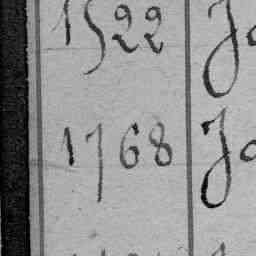 1522 Jo
1768 Jo